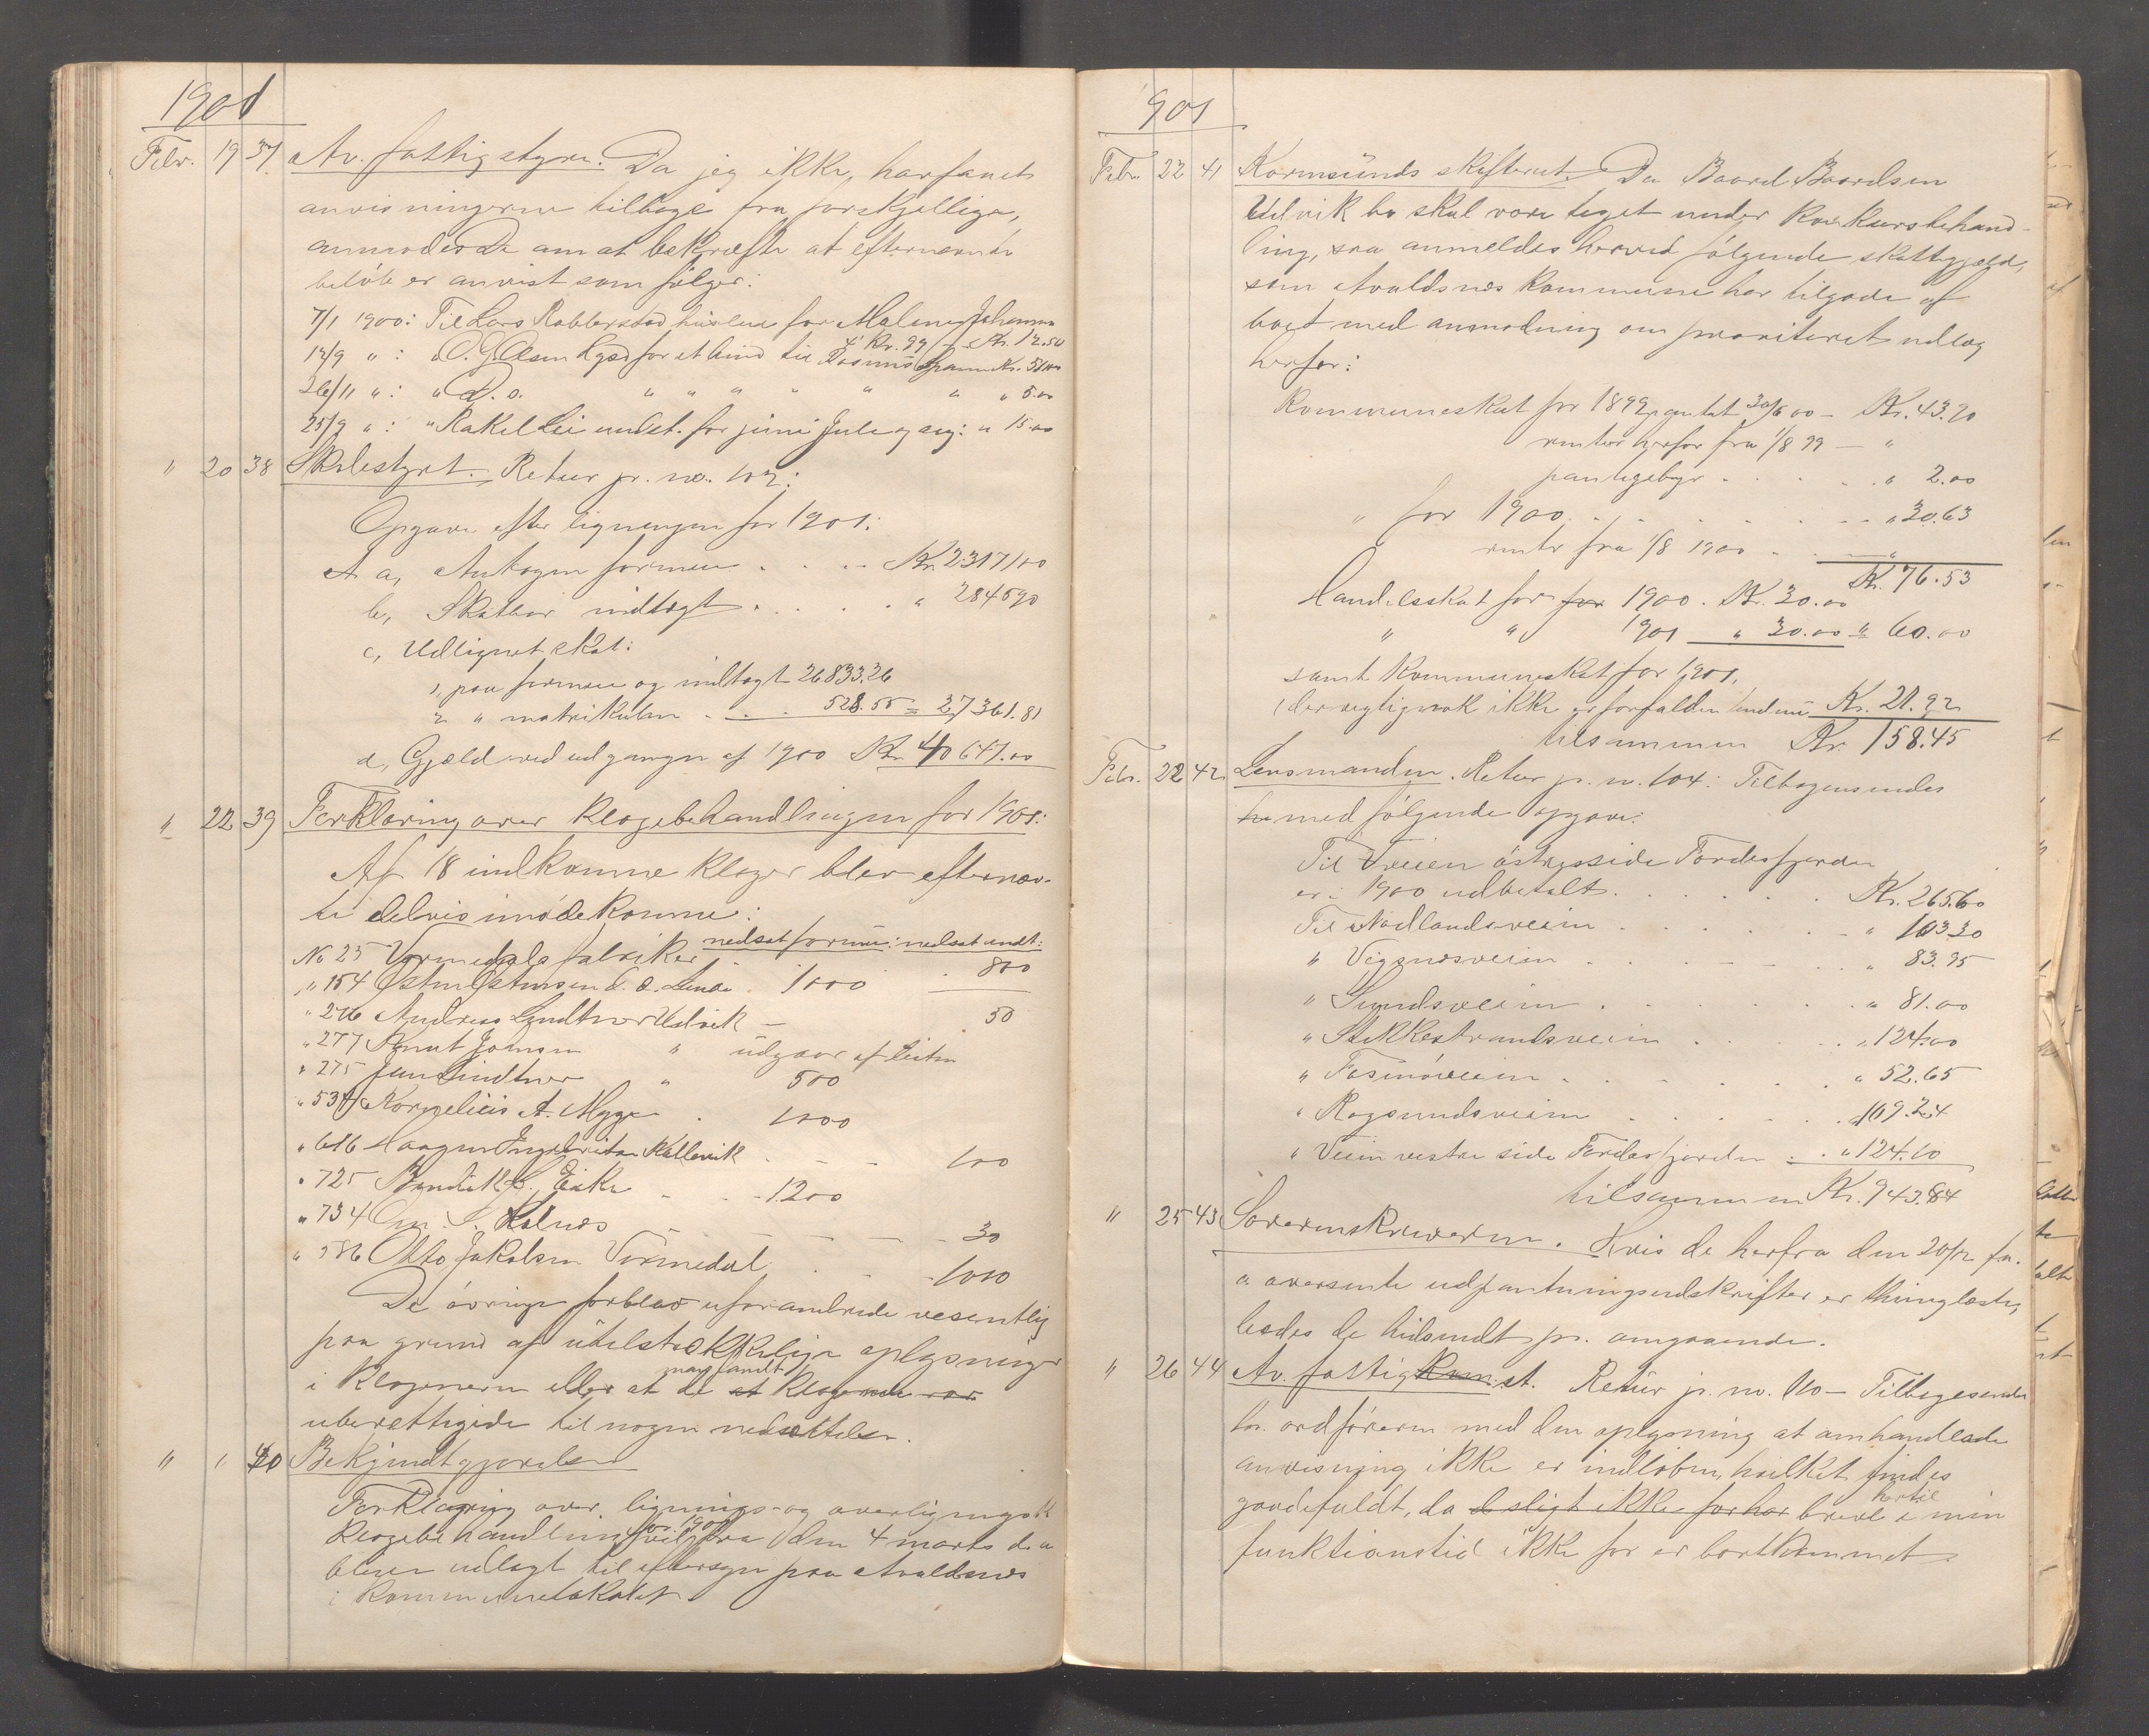 1901
Febr. 19 37 Av. fattigstyre. Da jeg ikke har faaet
anvisningerne tilbage fra forskjellige,
anmodes De om at bekræfte at efternævnte
beløb er anvist som følger:
7/1 1900: Til Lars Kobberstad husleie for Malene Johanna
4' Kv. 99 - Kr. 12.50
12/9 " : " O. G. Olsen for et lind til Rasmus Kr. 51.00
26/11 " : " D. o. " " " " " " " 5.00
25/9 " : " Rakel Lie undst. for juni Juli og aug: " 15.00
" 20 38 Skolestyret. Retur jr. no. 103:
Opgave efter ligningen for 1901:
A a, Antagen formue . . . . Kr. 2317100
b, Skatbar indtægt . . . . . " 284590
c, Udlignet skat:
1, paa formue og indtægt 26833.26
2 " matrikulen . . . 528.55 = 27361.81
d, Gjæld ved udgangen af 1900 Kr. 40647.00
" 22 39 Forklaring over klagebehandlingen for 1901:
Af 18 indkomne klager blev efternævn-
te delvis imødekomne:
nedsat formue: nedsat indt:
No 25 Vormedals fabriker . . 800
" 154 Østen Østensen d. æ. Lunde . 1000
" 276 Andreas Lindtner Udvik — 50
" 277 Knut Jonsen " udgaar af listen
" 275 Jens Lindtner " 500
" 534 Kornelius A. Mygge . 1000
" 616 Haagen Ingebritsen Kallevik . - - - 100
" 725 Bendik S. Eike . . - 1200
" 734 Om. S. Kolnes - - - - - 30
" 586 Otto Jakobsen Vormedal . . - 1000
De øvrige forblev uforandrede væsentlig
paa grund af utilstrækkelige oplysninger
i klagerne eller at de man fandt at klagerne var
uberettigede til nogen nedsættelse.
" " 40 Bekjendtgjørelse
Forklaring over lignings- og overligningsk
klagebehandling for 1901 vil fra den 4 marts d. a
bliver udlagt til eftersyn paa Avaldsnes
i kommunelokalet.
1901
Febr. 22 41 Karmsunds skifteret. Da Baard Baardsen
Udvik bo skal være taget under konkursbehand-
ling, saa anmeldes herved følgende skattegjæld,
som Avaldsnes kommune har tilgode af
boet med anmodning om prioriteret udlæg
herfor:
Kommuneskat for 1899 pantet 30/6 00 - Kr. 43.90
renter herfor fra 1/8 99 — "
pantegebyr . . . . . " 2.00
" for 1900 . . . . . . . . " 30.63
rente fra 1/8 1900 . . — "
Kr. 76.53
Handelsskat for for 1900 . Kr. 30.00
" " 1901 — " 30.00 = " 60.00
samt kommuneskat for 1901,
(der rigtignok ikke er forfalden endnu Kr. 21.92
tilsammen Kr. 158.45
Febr. 22 42 Lensmanden. Retur jr. no. 104: Tilbagesendes
hr med følgende opgave:
Til Veien østre side Førdesfjorden
er i 1900 udbetalt . . . . . . Kr. 265.60
Til Nodlandsveien . . . . . . " 103.30
" Vigsnesveien . . . . . . " 83.95
" Sundsveien . . . . . . " 81.00
" Stikkestrandsveien . . . . . " 124.00
" Fosenøveien . . . . . . " 52.65
" Røgsundsveien . . . . . . " 109.24
" Veien vestre side Førdesfjorden . . " 124.10
tilsammen Kr. 943.84
" 25 43 Sorenskriveren. Hvis de herfra den 20/12 f.
a. oversendte udpantningsudskrifter er thinglæste,
bedes de hidsendt pr. omgaaende.
" 26 44 Av. fattigkomst. Retur jr. no. 110 - Tilbagesendes
hr. ordføreren med den oplysning at omhandlede
anvisning ikke er indløben, hvilket findes
gaadefuldt, da d sligt ikke før har breve hertil i min
funktionstid ikke før er bortkommet.